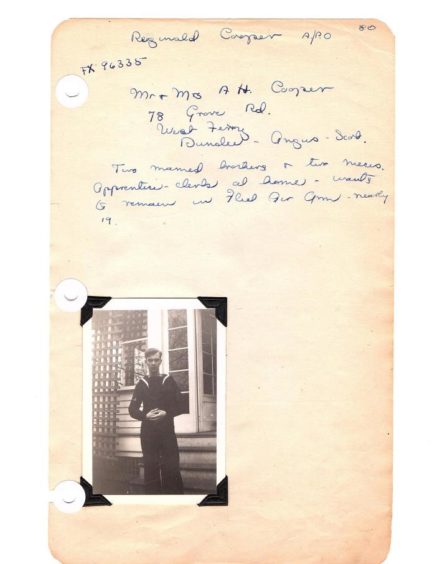 80
Reginald Cooper A/PO
FX 96335
Mr + Mrs A H. Cooper
78 Grove Rd.
West Ferry
Dundee - Angus - Scot.
Two married brothers + two nieces.
Apprentice - clerk at home - wants
to remain in Fleet Air Arm - nearly
19.